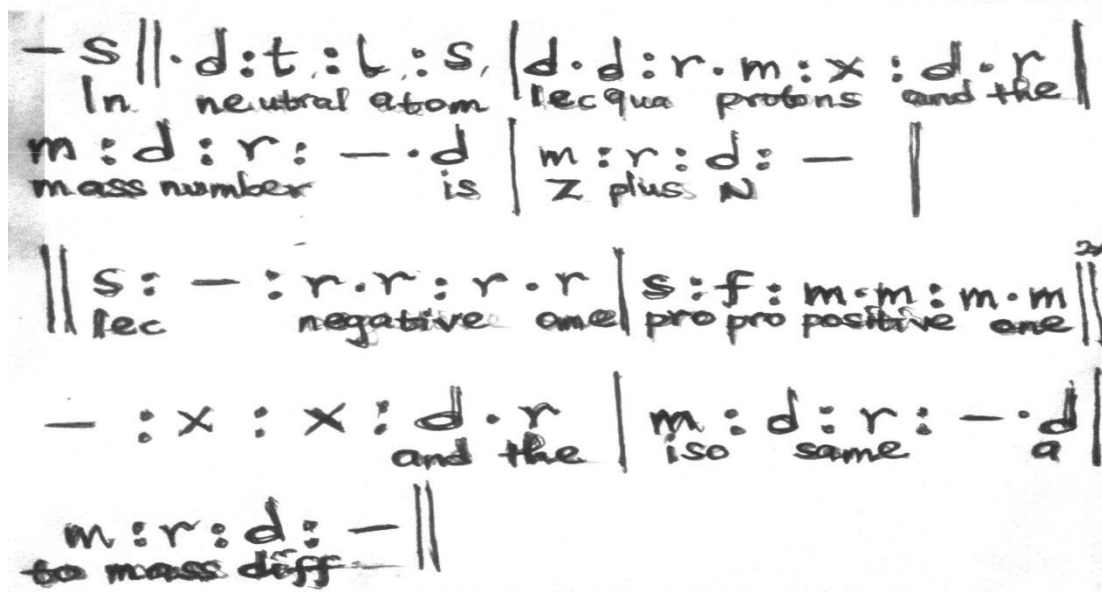 – s || . d : t , : l , : s , | d . d : r . m : x : d . r |
In neutral atom lecqua protons and the
m : d : r : – . d | m : r : d : – |
mass number is Z plus N
|| s : – : r . r : r . r | s : f : m . m : m . m ||
lec negative one pro pro positive one
– : x : x : d . r | m : d : r : – . d |
and the iso same a
m : r : d : – ||
to mass diff